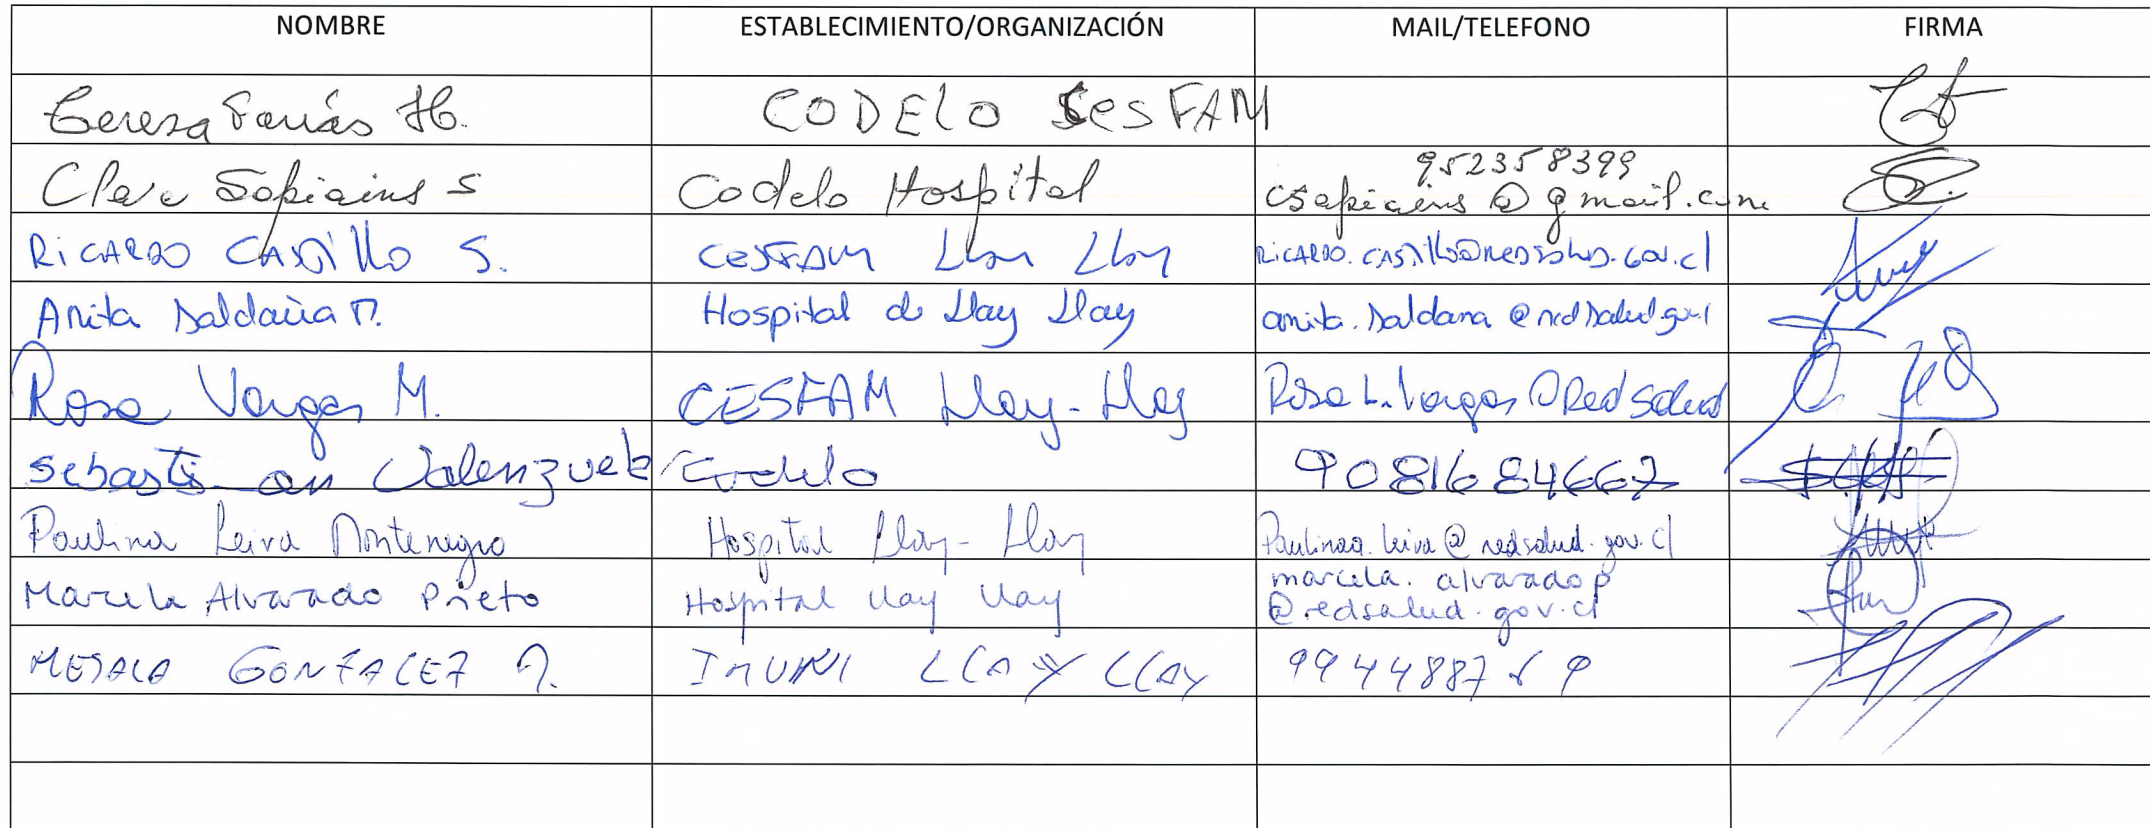 NOMBRE ESTABLECIMIENTO/ORGANIZACIÓN MAIL/TELEFONO FIRMA
Teresa Farías H. CODELO CESFAM
Clara Sapiains S Codelo Hospital 952358399
csapiains@gmail.com
RICARDO CASTillo S. CESFAM Llay Llay RICARDO.CASTillo@REDSALUD.GOV.cl
Anita Saldaña M. Hospital de Llay Llay anita.saldana@redsalud.gov.cl
Rosa Vargas M. CESFAM Llay-Llay Rosa L.Vargas@Redsalud
Sebastian Valenzuela Codelo 9081684667
Paulina Leiva Montenegro Hospital Llay-Llay Paulinaa.leiva@redsalud.gov.cl
Marcela Alvarado Prieto Hospital Llay Llay marcela.alvaradop
@redsalud.gov.cl
GONZALEZ LLAY LLAY